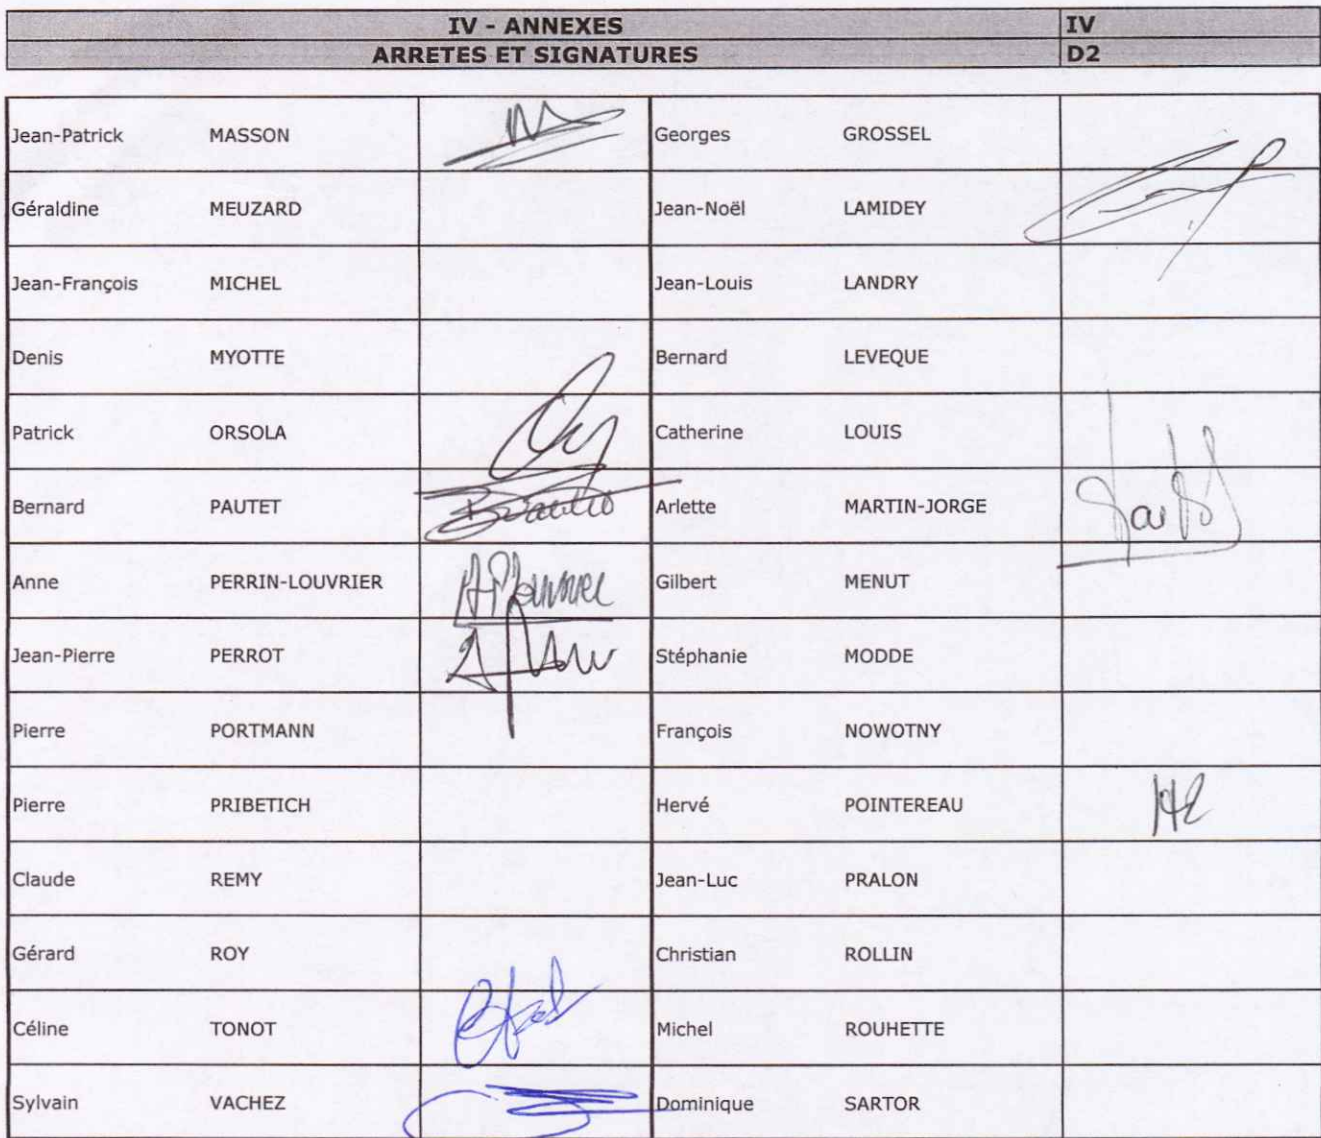 IV - ANNEXES IV
ARRETES ET SIGNATURES D2
Jean-Patrick MASSON Georges GROSSEL
Géraldine MEUZARD Jean-Noël LAMIDEY
Jean-François MICHEL Jean-Louis LANDRY
Denis MYOTTE Bernard LEVEQUE
Patrick ORSOLA Catherine LOUIS
Bernard PAUTET Arlette MARTIN-JORGE
Anne PERRIN-LOUVRIER Gilbert MENUT
Jean-Pierre PERROT Stéphanie MODDE
Pierre PORTMANN François NOWOTNY
Pierre PRIBETICH Hervé POINTEREAU
Claude REMY Jean-Luc PRALON
Gérard ROY Christian ROLLIN
Céline TONOT Michel ROUHETTE
Sylvain VACHEZ Dominique SARTOR